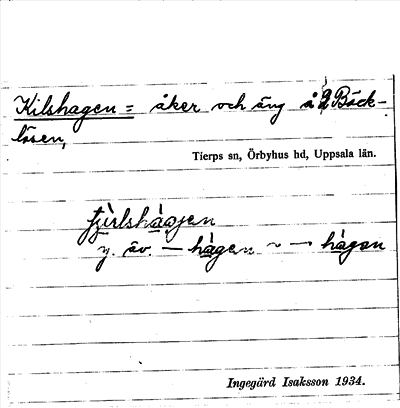 Kilshagen = åker och äng å Bäck-
lösen,
Tierps sn, Örbyhus hd, Uppsala län.
y. äv. — hågen ~ — hågan
Ingegärd Isaksson 1934.